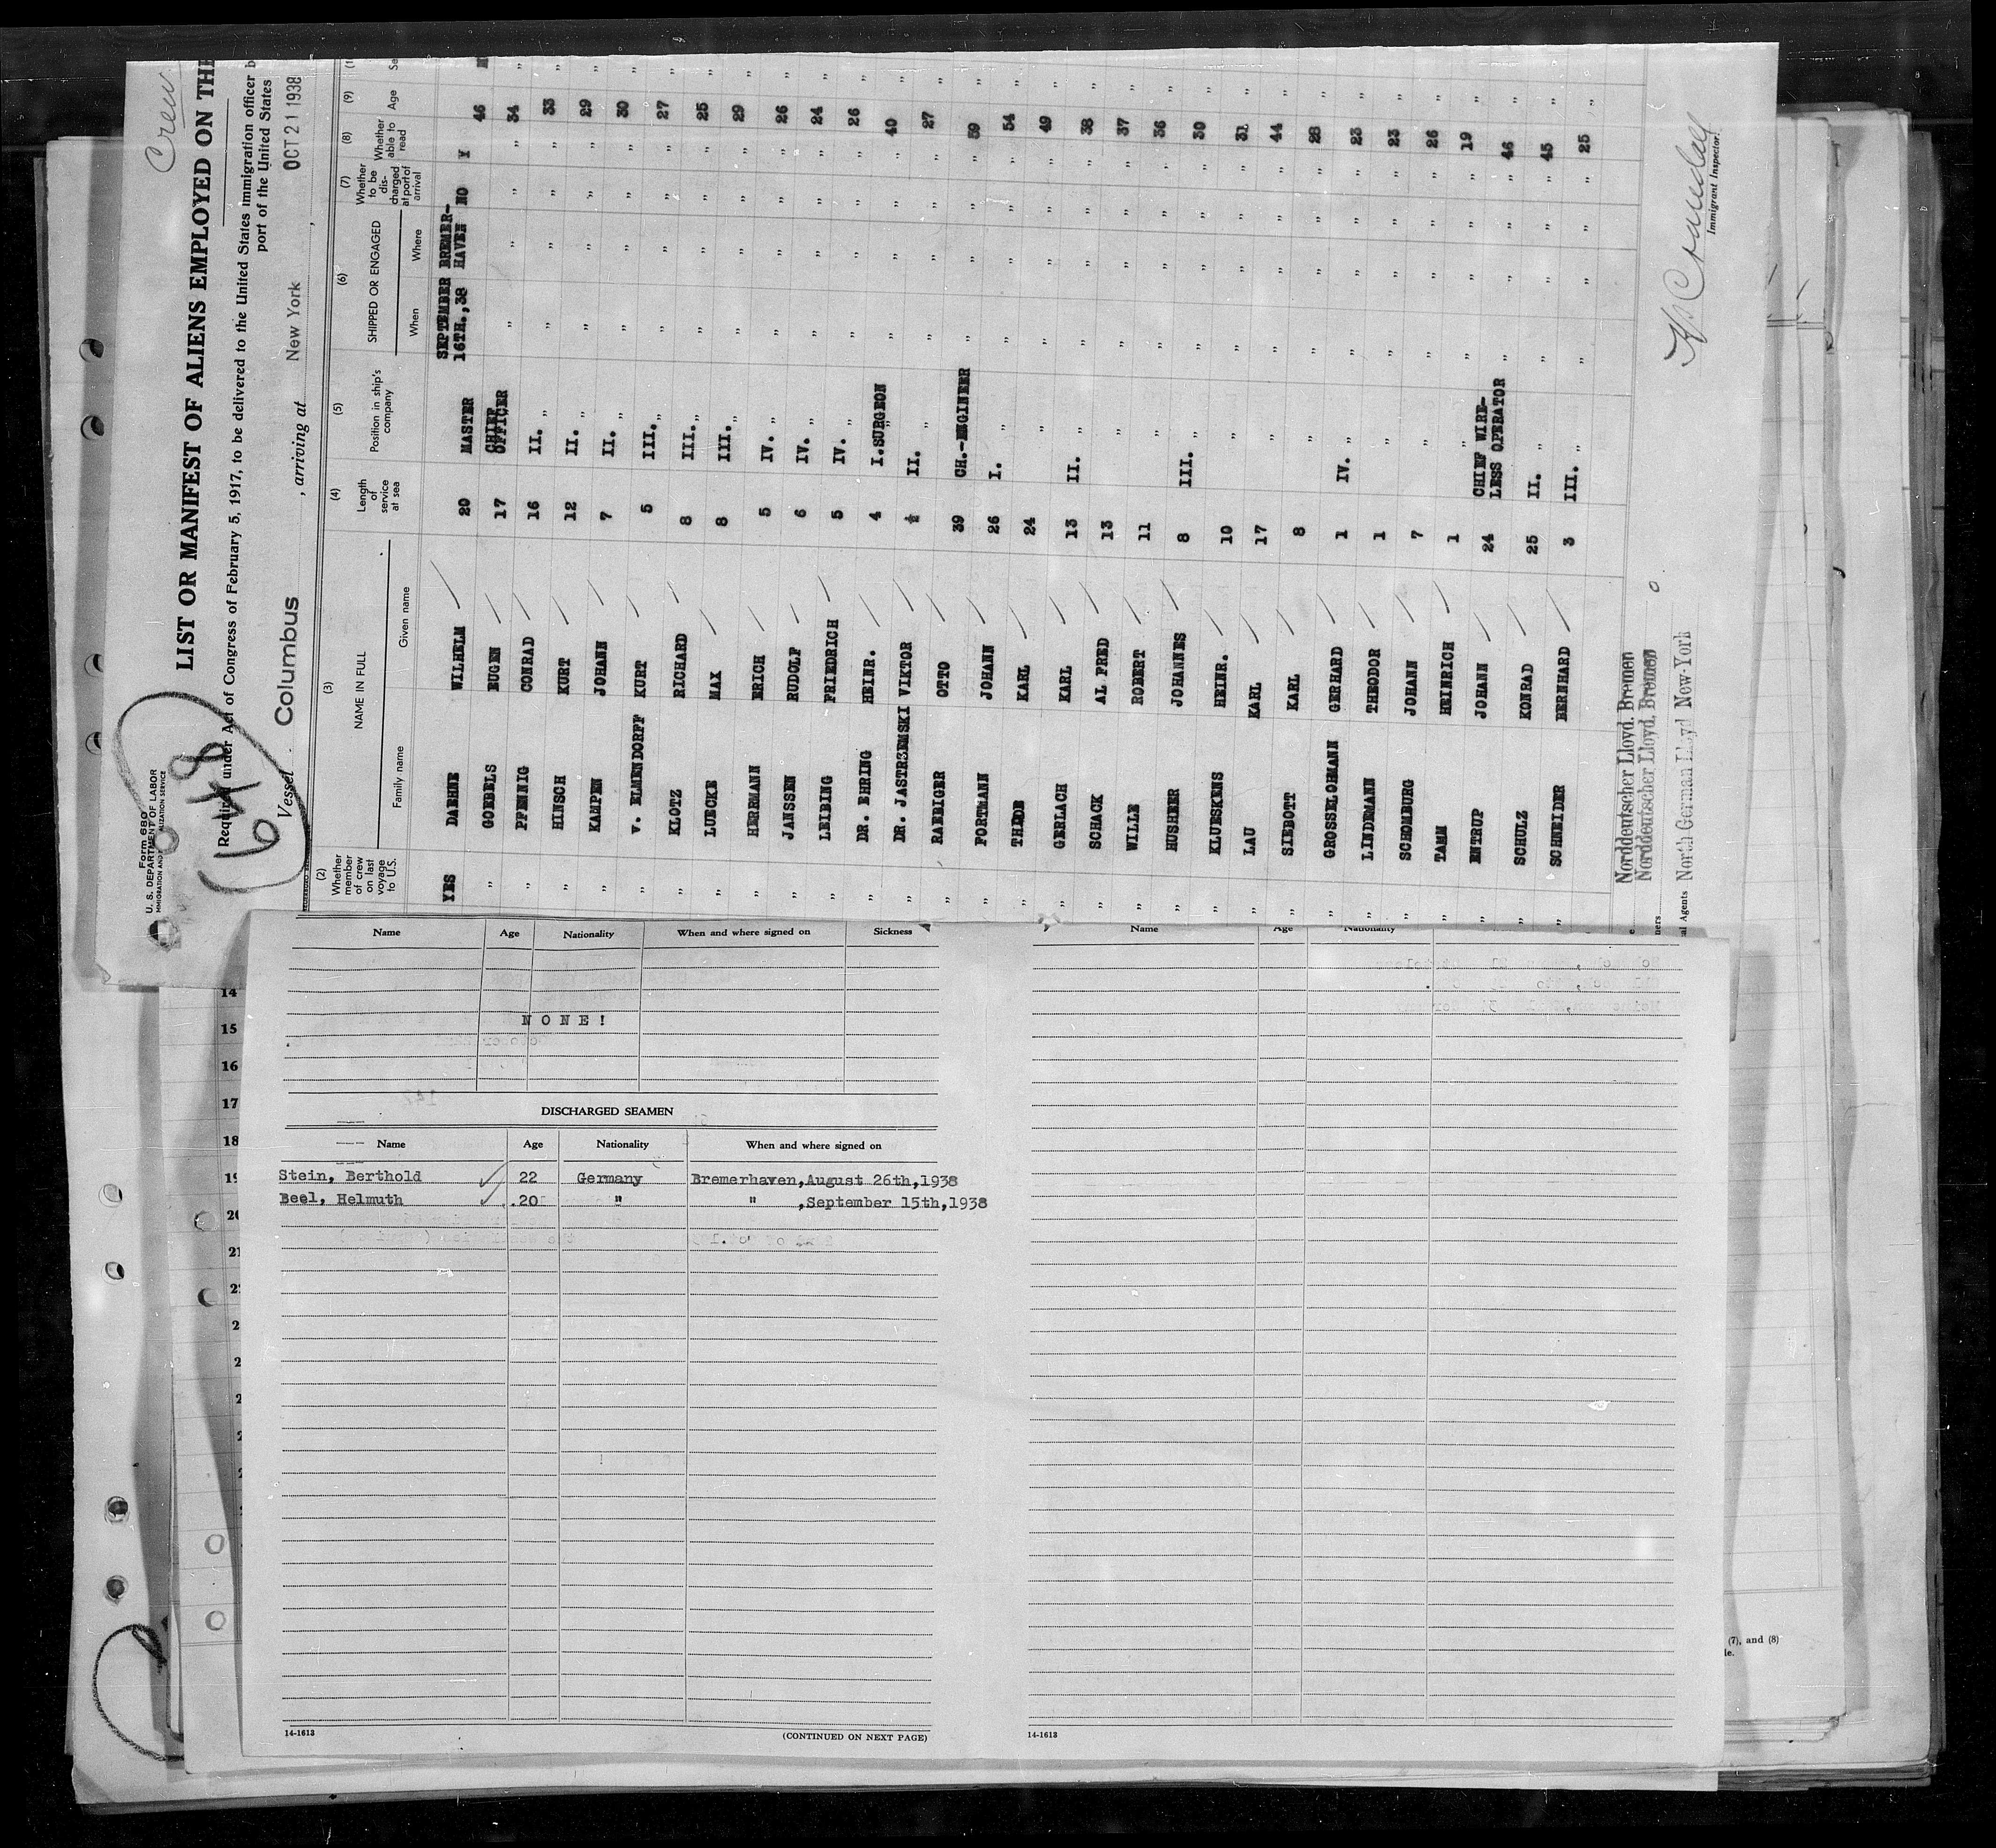 Crew
Form 680
U. S. DEPARTMENT OF LABOR
648
LIST OR MANIFEST OF ALIENS EMPLOYED ON THE
Required under Act of Congress of February 5, 1917, to be delivered to the United States immigration officer b
port of the United States
Vessel Columbus , arriving at New York , OCT 21 1938
(2) (3) (4) (5) (6) (7) (8) (9)
Whether member of crew on last voyage to U.S. NAME IN FULL Length of service at sea Position in ship's company SHIPPED OR ENGAGED Whether to be discharged at port of arrival Whether able to read Age Se
Family name Given name When Where
YES DAEHNE WILHELM 20 MASTER SEPTEMBER 16TH.,38 BREMER-HAVEN NO Y 46 M
" GOEGELS EUGEN 17 CHIEF OFFICER " " " " 34 "
" PFENNIG CONRAD 16 II. " " " " " 33 "
" HINSCH KURT 12 II. " " " " " 29 "
" KAMPEN JOHANN 7 II. " " " " " 30 "
" v. ELMENDORFF KURT 5 III. " " " " " 27 "
" KLOTZ RICHARD 8 III. " " " " " 25 "
" LUECKE MAX 8 III. " " " " " 29 "
" HERRMANN ERICH 5 IV. " " " " " 26 "
" JANSSEN RUDOLF 6 IV. " " " " " 24 "
" LEIDING FRIEDRICH 5 IV. " " " " " 26 "
" DR. EHRING HEINR. 4 I.SURGEON " " " " 40 "
" DR. JASTRZEMSKI VIKTOR ½ II. " " " " " 27 "
" RAEDIGER OTTO 39 CH.-ENGINEER " " " " 59 "
" PORTMANN JOHANN 26 I. " " " " " 54 "
" THODE KARL 24 " " " " " 49 "
" GERLACH KARL 13 II. " " " " " 38 "
" SCHACK ALFRED 13 " " " " " 37 "
" WILLE ROBERT 11 " " " " " 36 "
" HUSHEER JOHANNES 8 III. " " " " " 30 "
" KLUESKENS HEINR. 10 " " " " " 31 "
" LAU KARL 17 " " " " " 44 "
" SIEBOTT KARL 8 " " " " " 28 "
" GROSSELOHMANN GERHARD 1 IV. " " " " " 23 "
" LINDEMANN THEODOR 1 " " " " " 23 "
" SCHOMBURG JOHAN 7 " " " " " 26 "
" TAMM HEINRICH 1 " " " " " 19 "
" ENTRUP JOHANN 24 CHIEF WIRE-LESS OPERATOR " " " " 46 "
" SCHULZ KONRAD 25 II. " " " " " 45 "
" SCHNEIDER BERNHARD 3 III. " " " " " 25 "
Norddeutscher Lloyd, Bremen
Norddeutscher Lloyd, Bremen
Agents North German Lloyd New-York
Immigrant Inspector.
Name Age Nationality When and where signed on Sickness
NONE!
DISCHARGED SEAMEN
Name Age Nationality When and where signed on
Stein, Berthold 22 Germany Bremerhaven,August 26th,1938
Beel, Helmuth 20 " " ,September 15th,1938
14-1613 (CONTINUED ON NEXT PAGE)
Name Age Nationality
14-1613
14
15
16
17
18
19
20
21
(7), and (8)